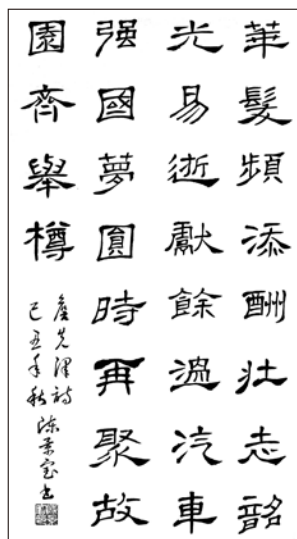 華髮頻添酬壯志韶
光易逝獻餘溫汽車
强國夢圓時再聚故
園齊舉樽
詹先澤詩
己丑年秋